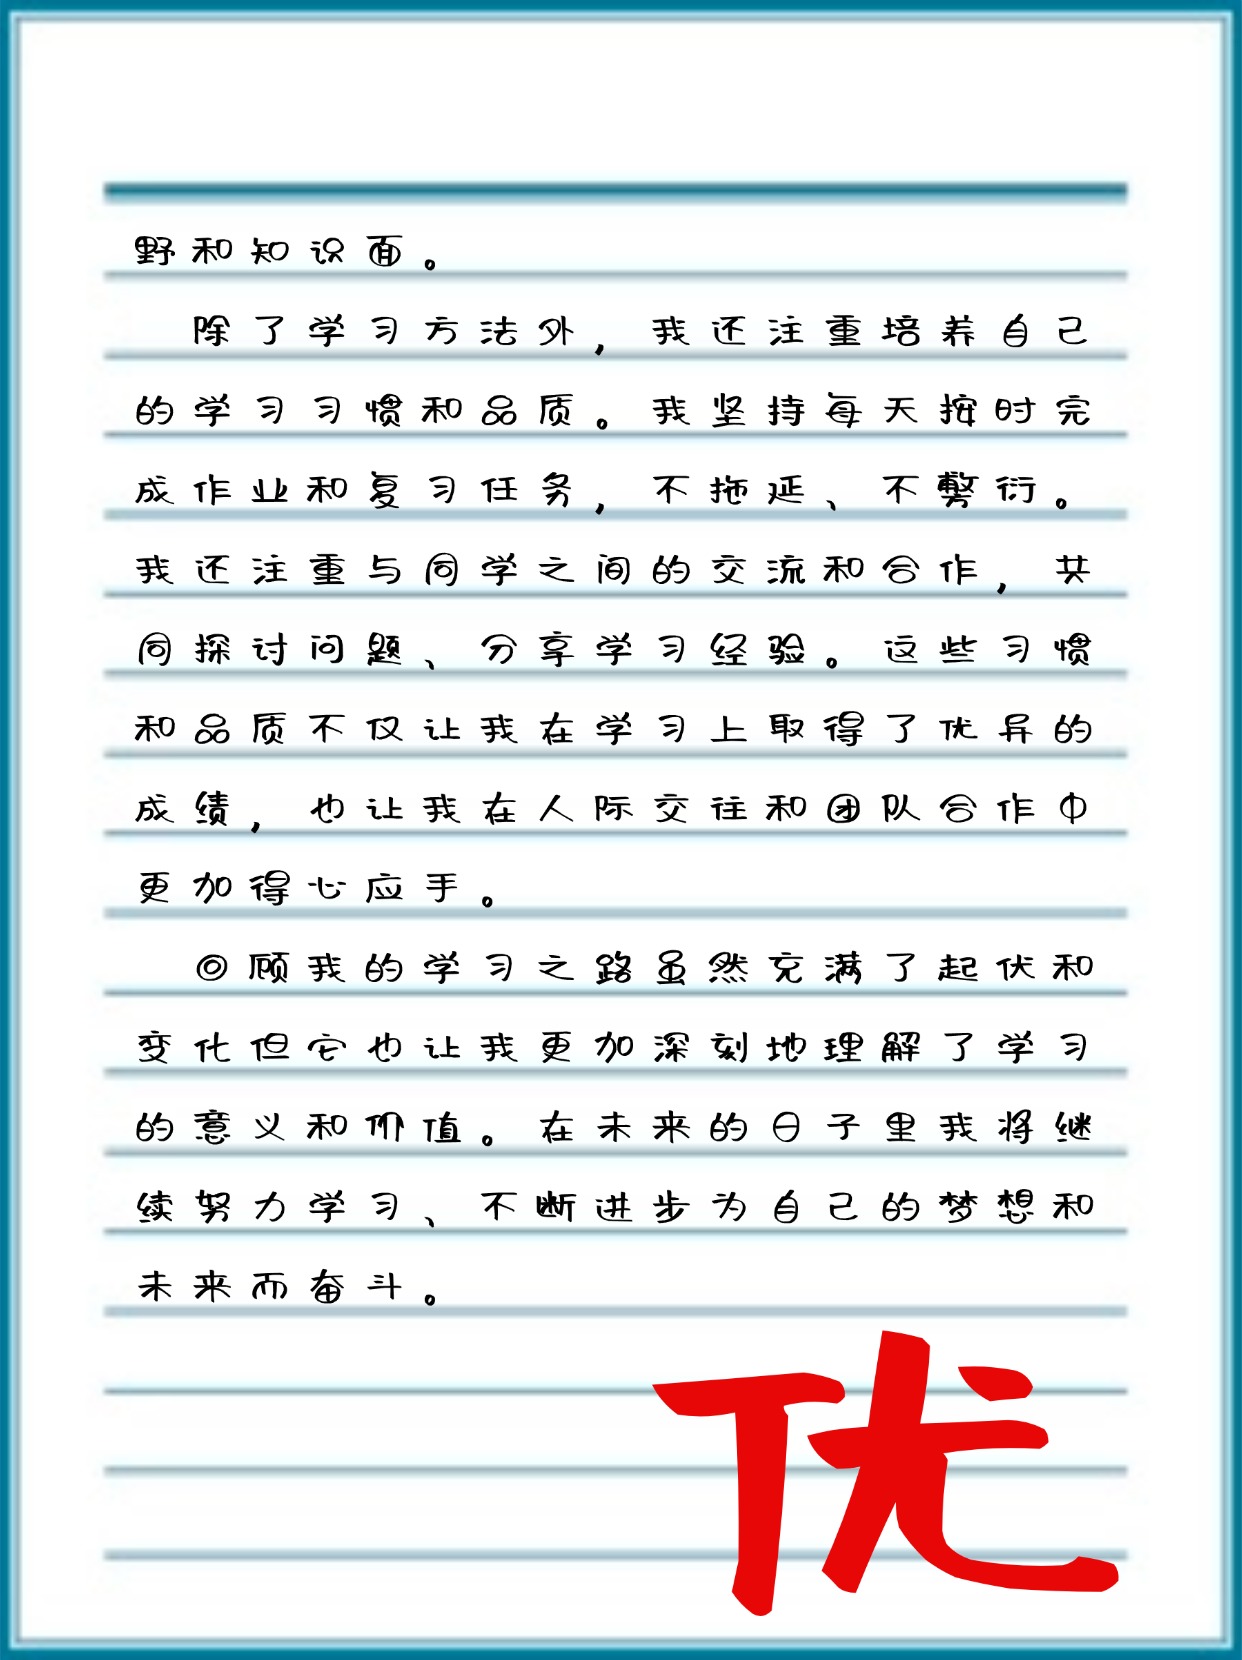 野和知识面。
除了学习方法外，我还注重培养自己
的学习习惯和品质。我坚持每天按时完
成作业和复习任务，不拖延、不敷衍。
我还注重与同学之间的交流和合作，共
同探讨问题、分享学习经验。这些习惯
和品质不仅让我在学习上取得了优异的
成绩，也让我在人际交往和团队合作中
更加得心应手。
回顾我的学习之路虽然充满了起伏和
变化但它也让我更加深刻地理解了学习
的意义和价值。在未来的日子里我将继
续努力学习、不断进步为自己的梦想和
未来而奋斗。
优